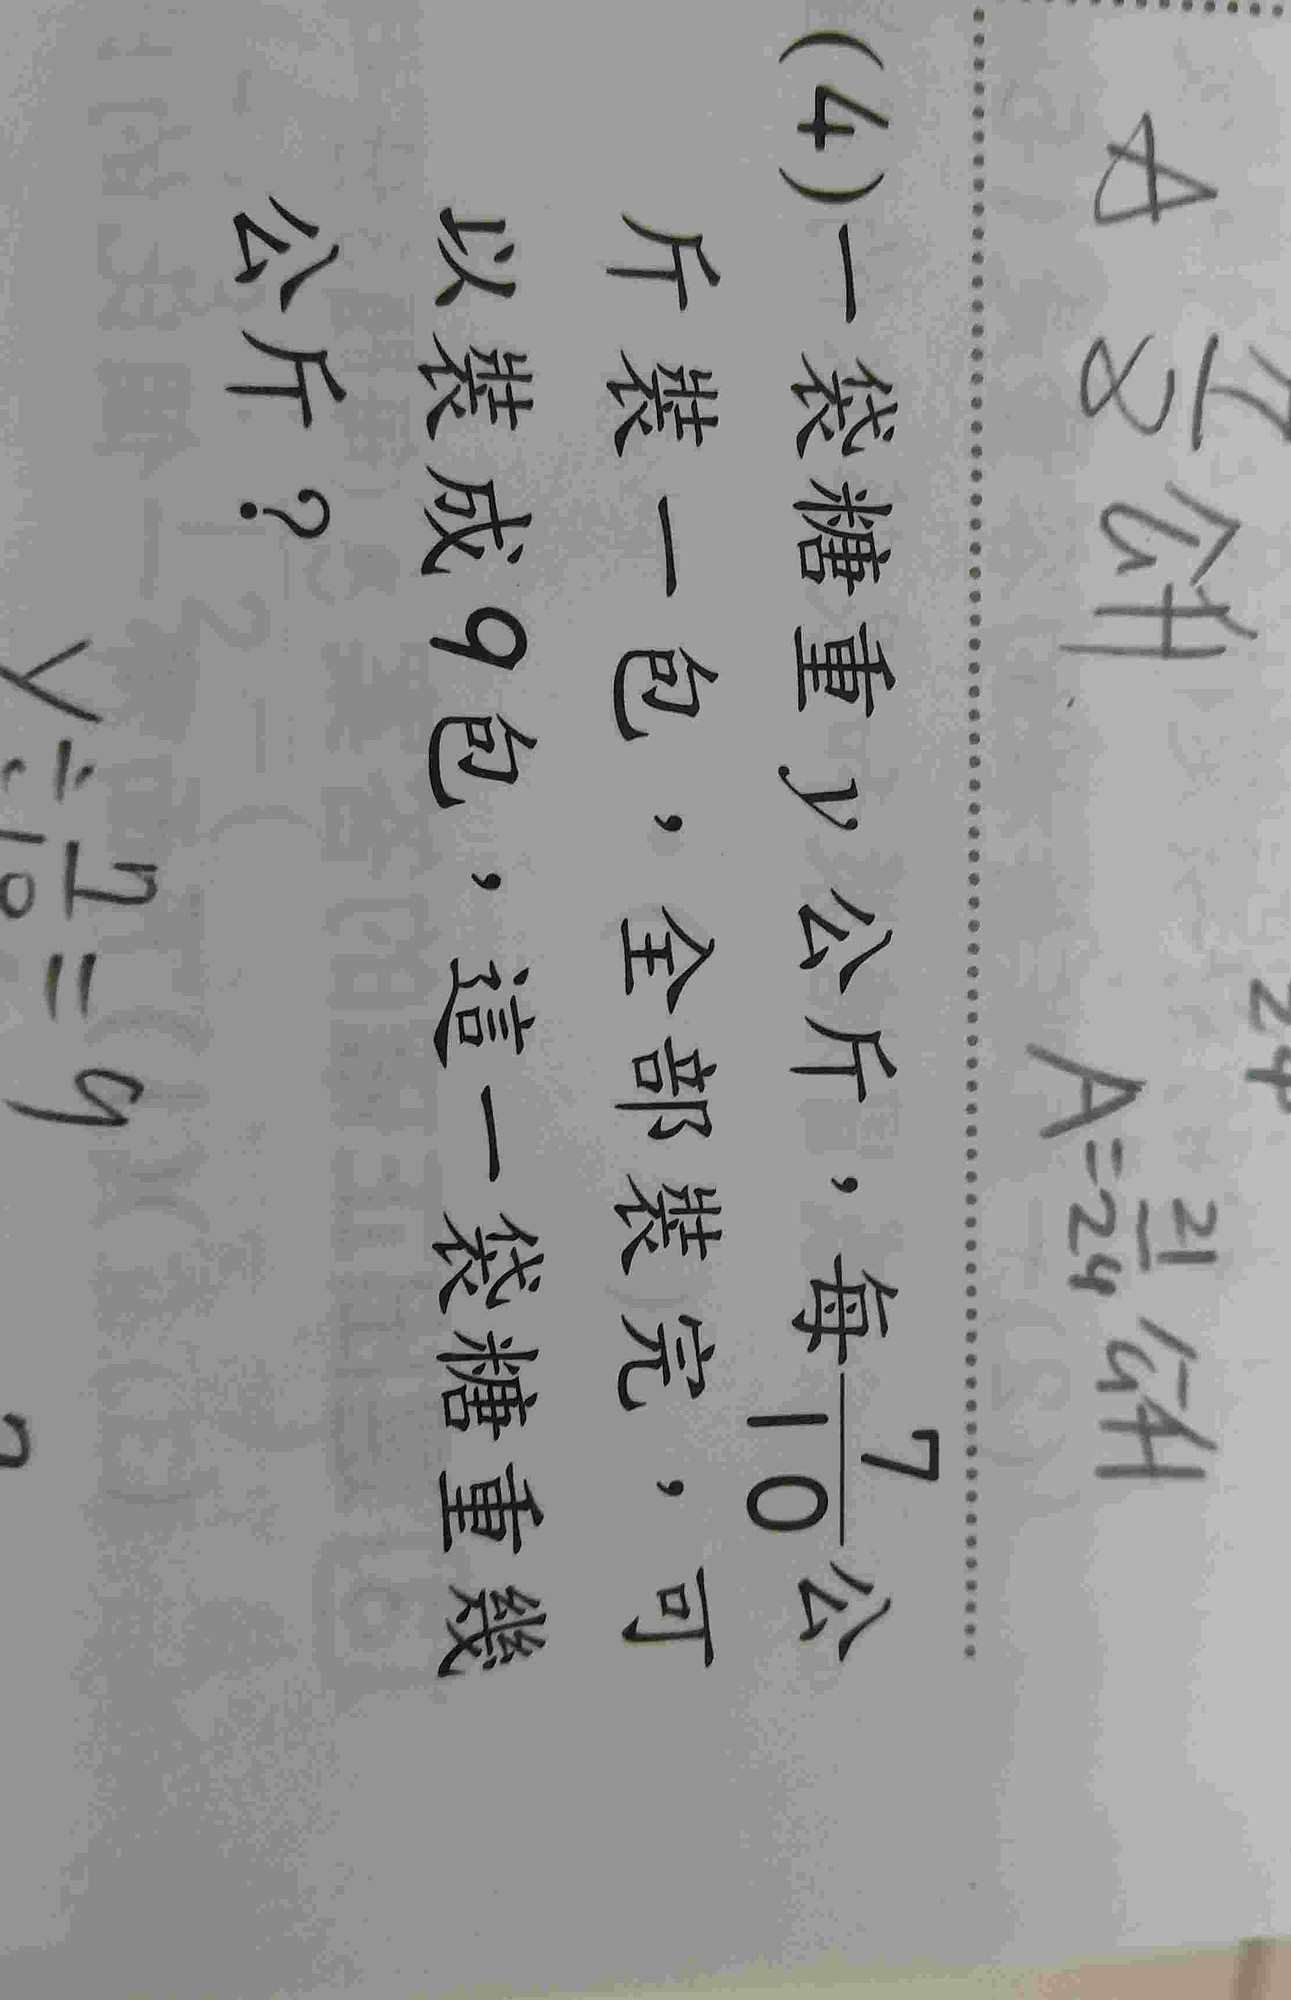 24
A = 21/24 公升
(4) 一袋糖重y公斤，每7/10公
斤裝一包，全部裝完，可
以裝成9包，這一袋糖重幾
公斤？
y ÷ 7/10 = 9